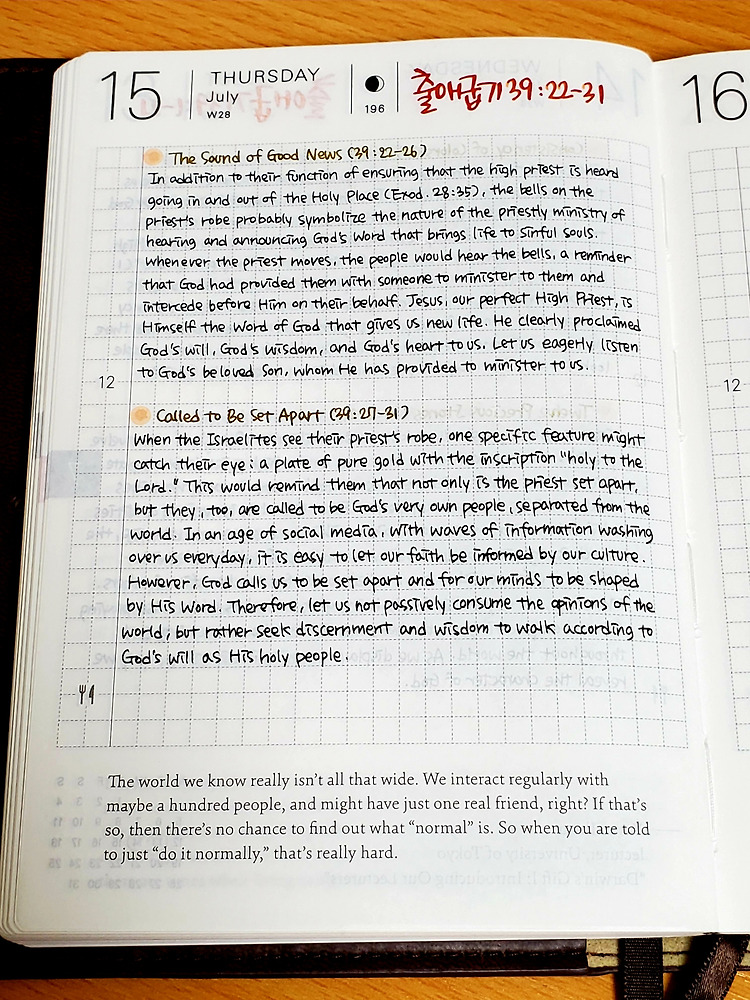 15
THURSDAY
July
W28
196
출애굽기 39:22-31
16
The Sound of Good News (39:22-26)
In addition to their function of ensuring that the high priest is heard
going in and out of the Holy Place (Exod. 28:35), the bells on the
priest's robe probably symbolize the nature of the priestly ministry of
hearing and announcing God's Word that brings life to sinful souls.
Whenever the priest moves, the people would hear the bells, a reminder
that God had provided them with someone to minister to them and
intercede before Him on their behalf. Jesus, our perfect High Priest, is
Himself the Word of God that gives us new life. He clearly proclaimed
God's will, God's wisdom, and God's heart to us. Let us eagerly listen
to God's beloved Son, whom He has provided to minister to us.
12
12
Called to Be Set Apart (39:27-31)
When the Israelites see their priest's robe, one specific feature might
catch their eye: a plate of pure gold with the inscription "holy to the
Lord." This would remind them that not only is the priest set apart,
but they, too, are called to be God's very own people, separated from the
world. In an age of social media, with waves of information washing
over us everyday, it is easy to let our faith be informed by our culture.
However, God calls us to be set apart and for our minds to be shaped
by His Word. Therefore, let us not passively consume the opinions of the
world, but rather seek discernment and wisdom to walk according to
God's will as His holy people.
The world we know really isn't all that wide. We interact regularly with
maybe a hundred people, and might have just one real friend, right? If that's
so, then there's no chance to find out what “normal” is. So when you are told
to just “do it normally,” that's really hard.